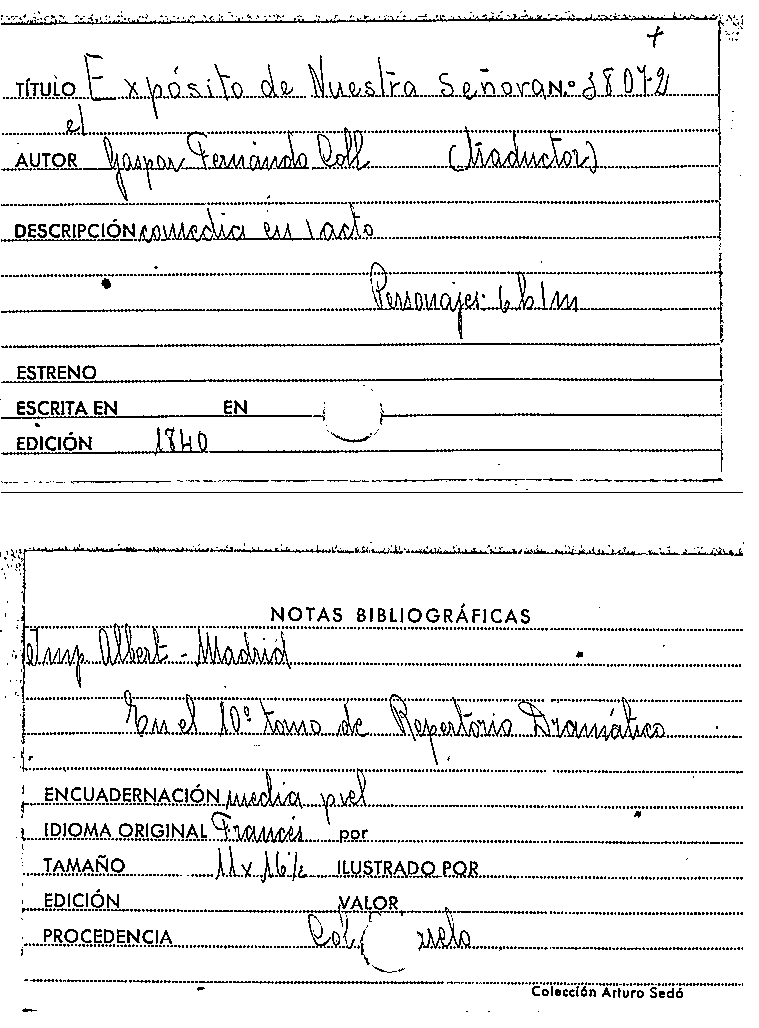 +
TÍTULO Expósito de Nuestra Señora N.º 38072
el
AUTOR Gaspar Fernando Coll (traductor)
DESCRIPCIÓN comedia en 1 acto
Personajes: 6 h 1 m
ESTRENO
ESCRITA EN EN
EDICIÓN 1840
NOTAS BIBLIOGRÁFICAS
Imp Albert - Madrid
En el 10º tomo de Repertorio Dramático
ENCUADERNACIÓN media piel
IDIOMA ORIGINAL Francés por
TAMAÑO 11 x 16½ ILUSTRADO POR
EDICIÓN VALOR
PROCEDENCIA Col.
Colección Arturo Sedó